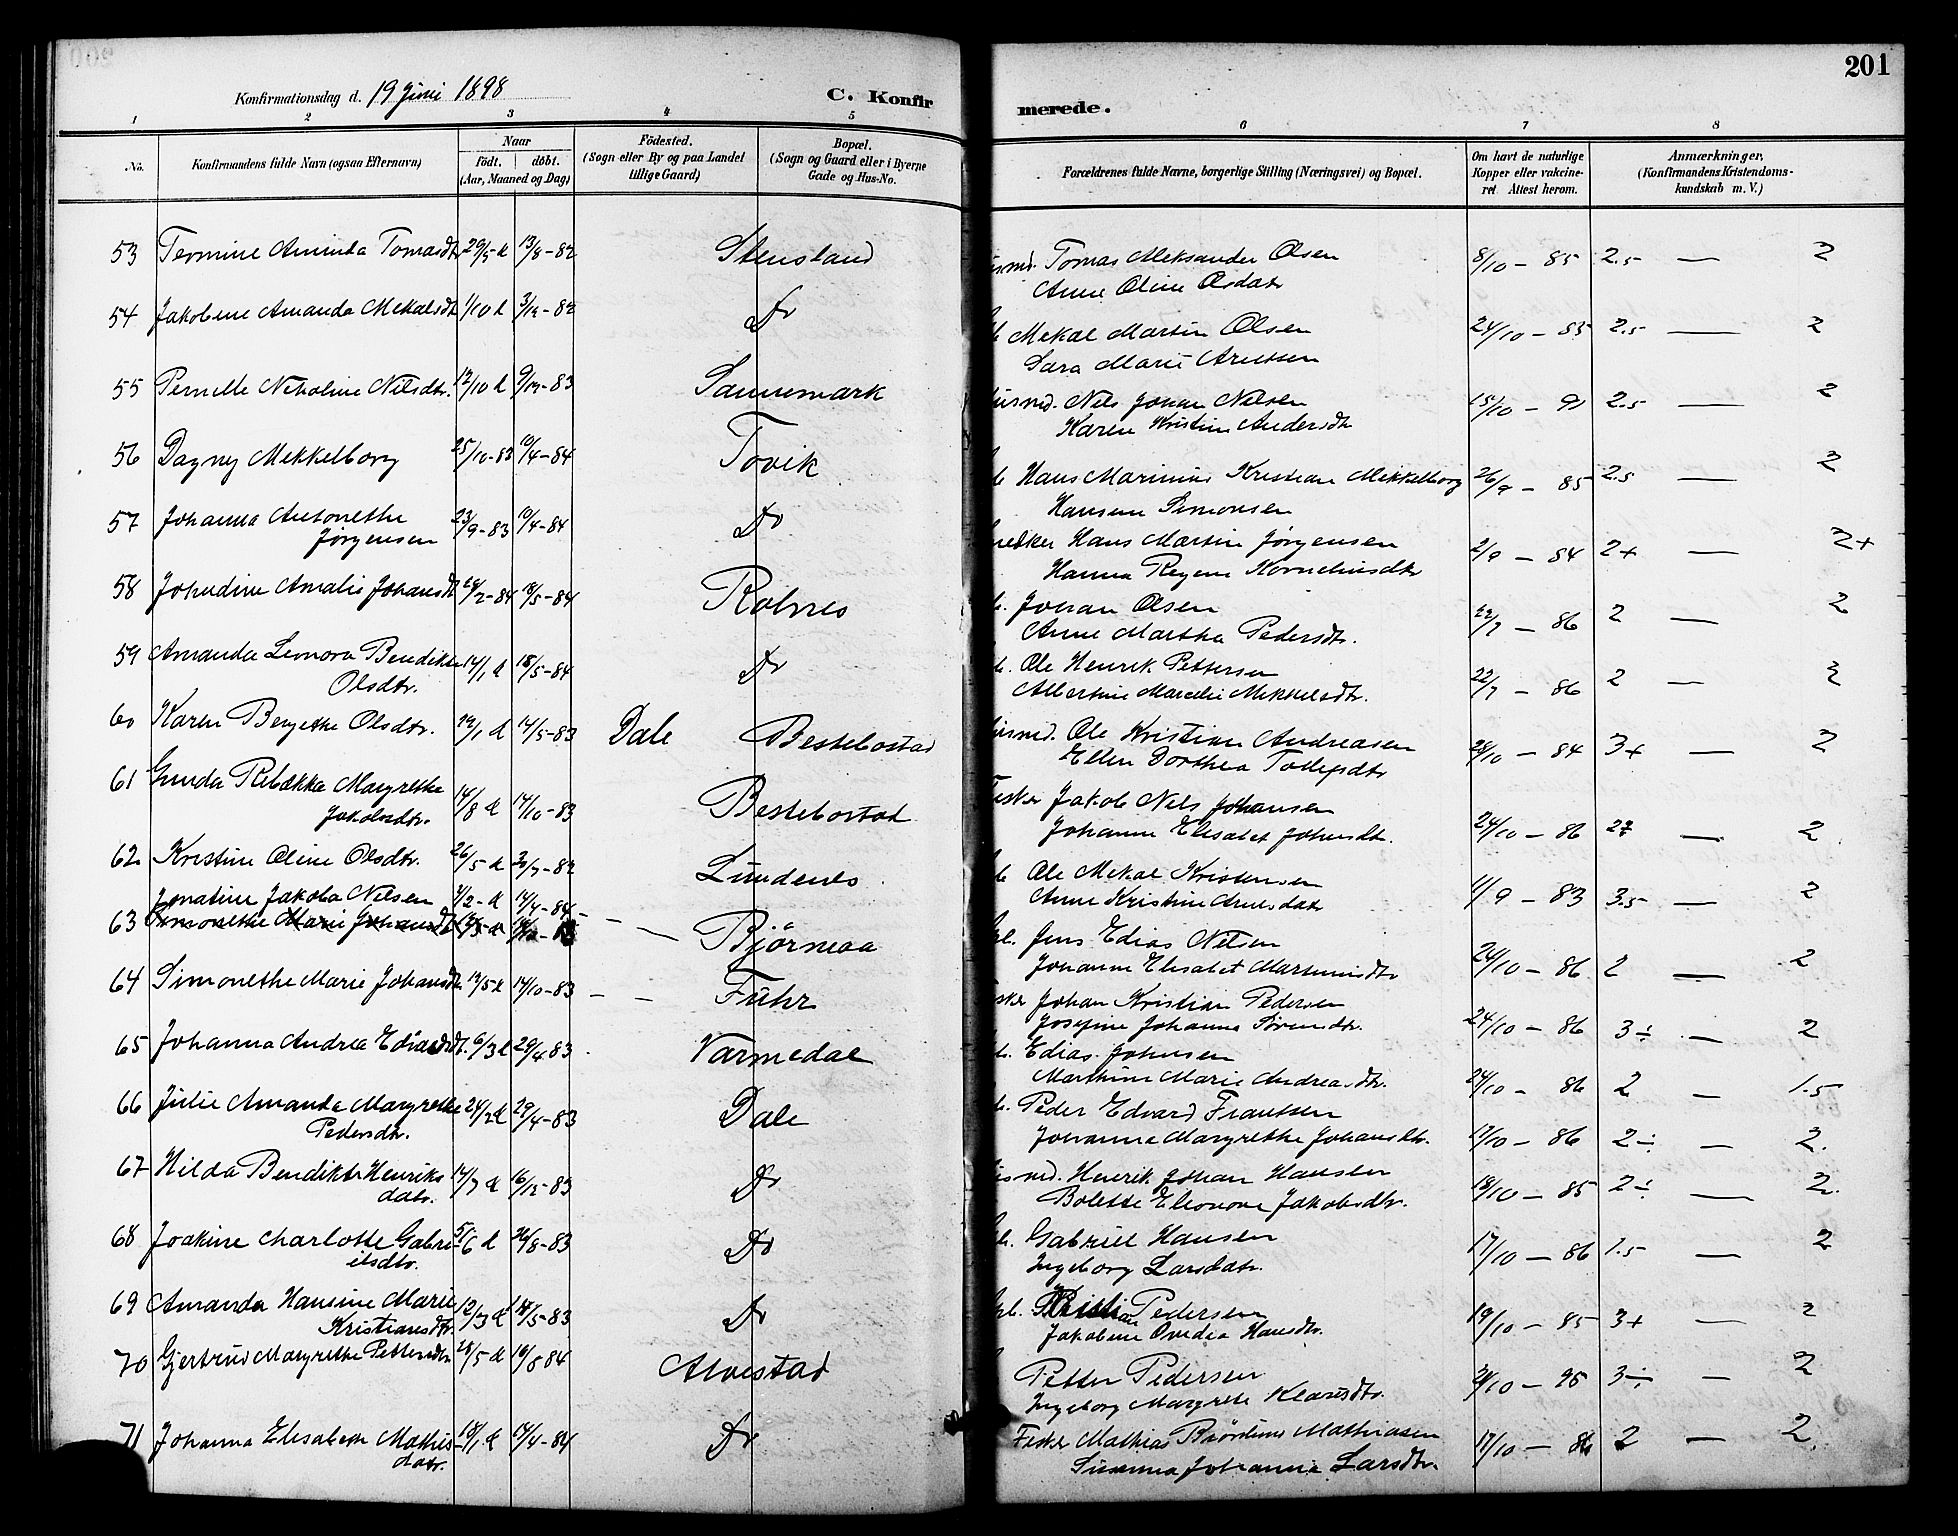 201
Konfirmationsdag d. 19 Juni 1898
C. Konfir
merede.
1 2 3 4 5
6 7 8
No.
Konfirmandens fulde Navn (ogsaa Efternavn)
Naar
født. døbt.
(Aar, Maaned og Dag)
Fødested.
(Sogn eller By og paa Landet
tillige Gaard)
Bopæl.
(Sogn og Gaard eller i Byerne
Gade og Hus-No.
Forældrenes fulde Navne, borgerlige Stilling (Næringsvei) og Bopæl.
Om havt de naturlige
Kopper eller vakcine-
ret. Attest herom.
Anmærkninger,
(Konfirmandens Kristendoms-
kundskab m. V.)
53 Termine Aminda Tomasdtr 13/8-82 Stensland Tomas Aleksander Olsen 8/10 - 85 2.5 — 2
Anne Oline Olsdatr
54 Jakobine Amanda Mekalsdtr 1/10 3/12-82 Do Mekal Martin Olsen 24/10 - 85 2.5 — 2
Sara Marie Arntsen
55 Pernelle Nekoline Nilsdtr. 12/10 9/12-83 Sannemark Nils Johan Nilsen 15/10 - 91 2.5 — 2
Karen Kristine Andersdtr
56 Dagny Mekkelborg 25/10-83 10/4-84 Tovik Hans Marinius Kristian Mekkelborg 26/9 - 85 2.5 — 2
Hansine Simonsen
57 Johanna Antonethe 23/9-83 10/4-84 Do Hans Martin Jørgensen 2/9 - 84 2+ — 2+
Jørgensen Hanna Regine Korneliusdtr
58 Johndine Amalie Johansdtr 18/5-84 Rolnes Johan Olsen 22/7 - 86 2 — 2
Anne Martha Pedersdtr.
59 Amanda Leonora Bendikte 14/1 18/5-84 Do Ole Henrik Pettersen 22/7 - 86 2 — 2
Olsdtr. Albertine Marcelie Mekkelsdtr.
60 Karen Bergethe Olsdtr. 14/5-83 Dale Bestebostad Ole Kristian Andreasen 28/10 - 84 3+ — 2
Ellen Dorthea Tollefsdtr
61 Gunda Rebækka Margrethe 14/8 14/10-83 Bestebostad Fisker Jakob Nils Johansen 24/10 - 86 — 2
Jakobsdtr. Johanne Elisabet Johnsdtr.
62 Kristine Oline Olsdtr. 26/5 Lundenes Ole Mekal Kristensen 11/9 - 83 3.5 — 2
Anne Kristine Arntsdatr
Jonatine Jakoba Nilsen 14/4-84
63 Simonethe Marie Johansdtr Bjørnraa Jens Edias Nilsen 24/10 - 86 2 — 2
Johanne Elisabet Martinusdtr
64 Simonethe Marie Johansdtr. 12/5 14/10-83 — — Führ Johan Kristian Pedersen 24/10 - 86 3÷ — 2
Josefine Johanna Sørensdtr.
65 Johanna Andrea Ediasdtr. 6/3 29/4.83 Varmedal Edias Johnsen 24/10 - 86 2 — 1.5
Marthine Marie Andreasdtr.
66 Julie Amanda Margrethe 24/2 29/4-83 Dale Peder Edvard Frantsen 17/10 - 86 2÷ — 2.
Pedersdtr. Johanna Margrethe Johansdtr.
67 Hilda Bendikte Henriks 14/7 16/12-83 Do Henrik Johan Hansen 18/10 - 85 2÷ — 2.
datr. Bolette Eleonore Jakobsdtr.
68 Joakine Charlotte Gabri- 5/6 26/8-83 Do Gabriel Hansen 17/10 - 86 1.5 — 2
elsdtr. Ingeborg Larsdatr.
69 Amanda Hansine Marie 12/3 18/5-83 Do Kristian Pedersen 19/10 - 85 3+ — 2
Kristiansdtr. Jakobine Ovedia Hansdtr.
70 Gjertrud Margrethe Pettersdtr 28/5 10/8 84 Alvestad Petter Pedersen 3÷ — 2
Ingeborg Margrete Klausdtr.
71 Johanna Elisabeth Mathis- 18/1 14/4-84 Do Fisker Mathias Bjørdinus Mathiasen 17/10 - 86 2 — 2.
datr. Susanna Johanna Larsdtr.